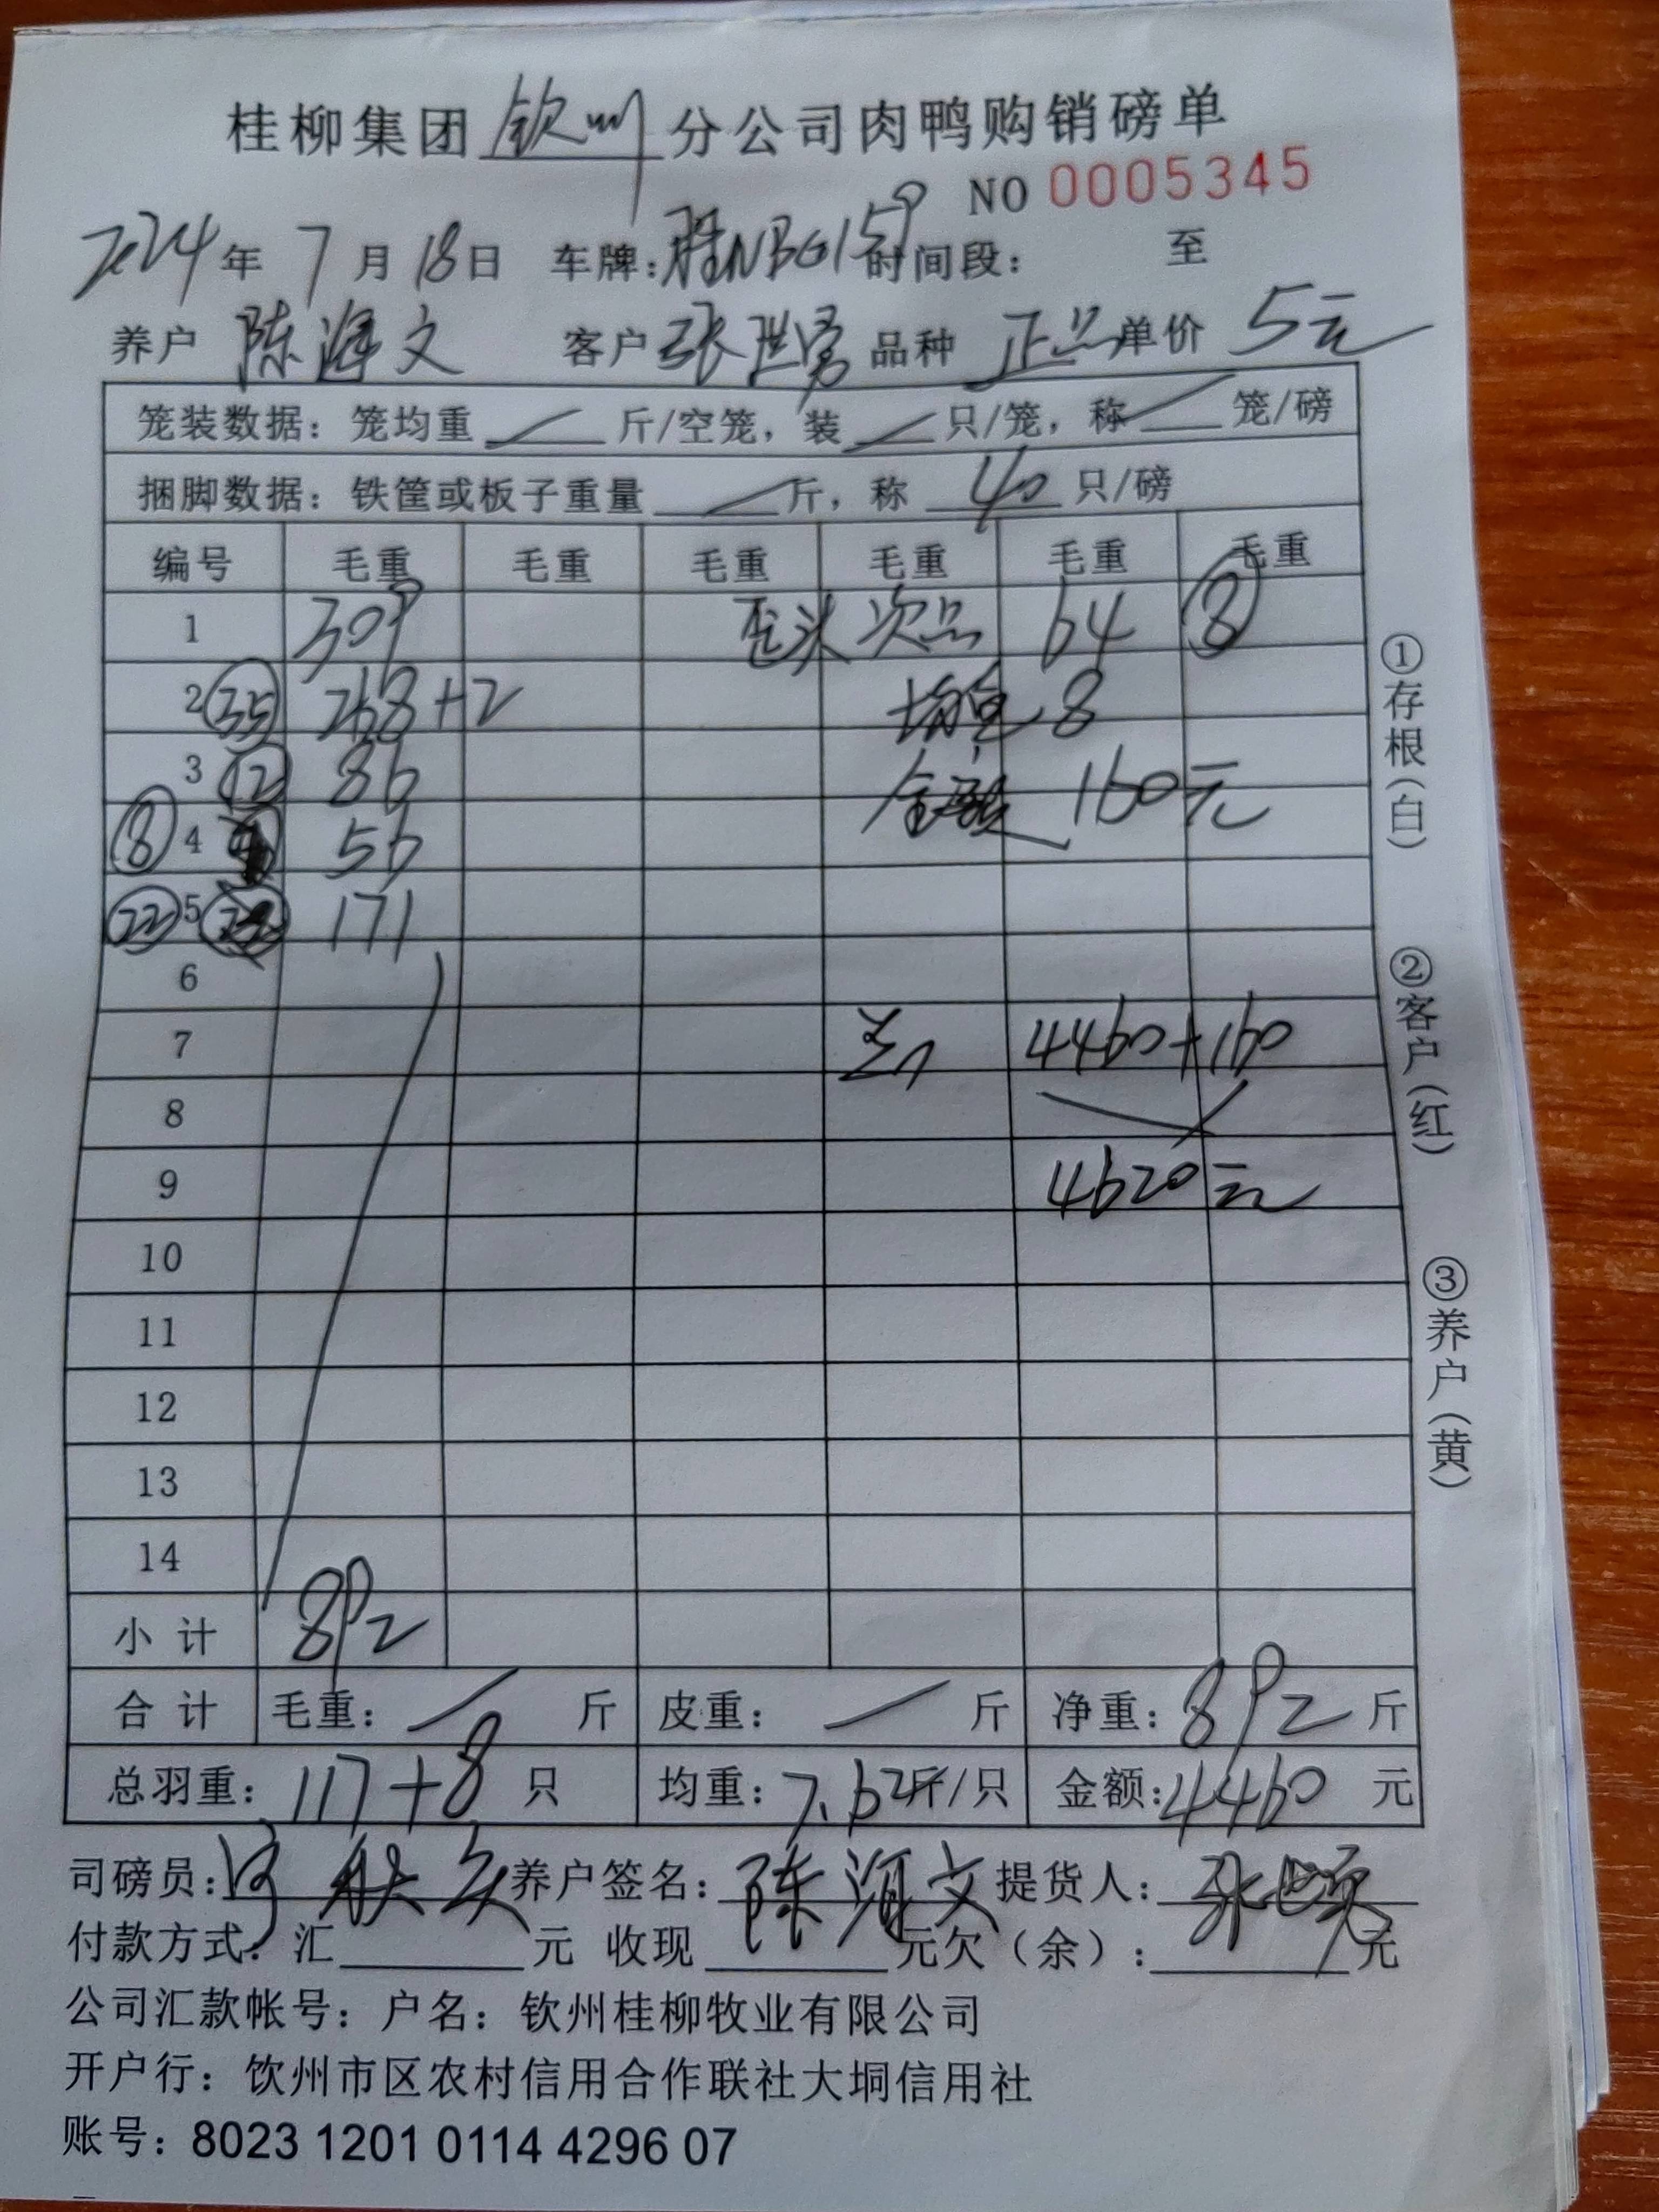 桂柳集团钦州分公司肉鸭购销磅单
NO 0005345
2024年7月18日 车牌:桂NBG159 时间段: 至
养户 陈海文 客户 张世勇 品种 正品 单价 5元
笼装数据:笼均重 斤/空笼,装 只/笼,称 笼/磅
捆脚数据:铁筐或板子重量 斤,称 40 只/磅
编号 毛重 毛重 毛重 毛重 毛重 毛重
1 309 歪头 次品 64 ⑧
2 ㉟ 268+2 均重 8
3 ⑫ 86 金额 160元
⑧ 4 56
㉒ 5 171
6
7 共 4460+160
8
9 4620元
10
11
12
13
14
小计 892
合计 毛重: 斤 皮重: 斤 净重:892斤
总羽重:117+8 只 均重:7.62斤/只 金额:4460 元
司磅员: 养户签名:陈海文 提货人:张世勇
付款方式:汇 元 收现 元 欠(余): 元
公司汇款帐号:户名:钦州桂柳牧业有限公司
开户行:钦州市区农村信用合作联社大垌信用社
账号:8023 1201 0114 4296 07
①存根(白)
②客户(红)
③养户(黄)